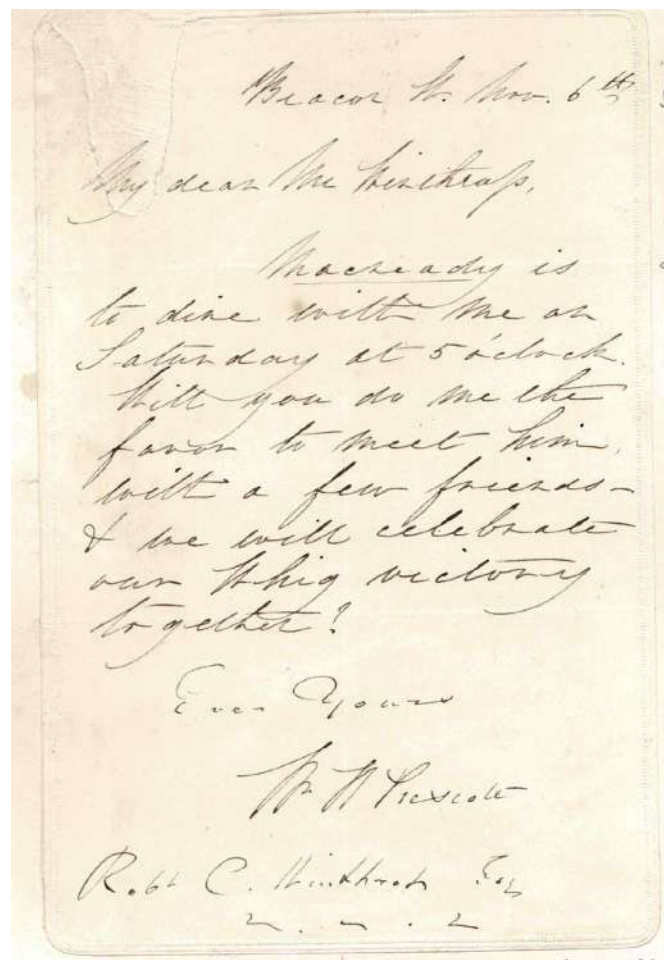 Beacon St. Nov. 6th
My dear Mr Winthrop,
Macready is
to dine with me on
Saturday at 5 o'clock.
Will you do me the
favor to meet him,
with a few friends –
& we will celebrate
our Whig victory
together?
Ever Yours
Wm H Prescott
Robt C. Winthrop Esq